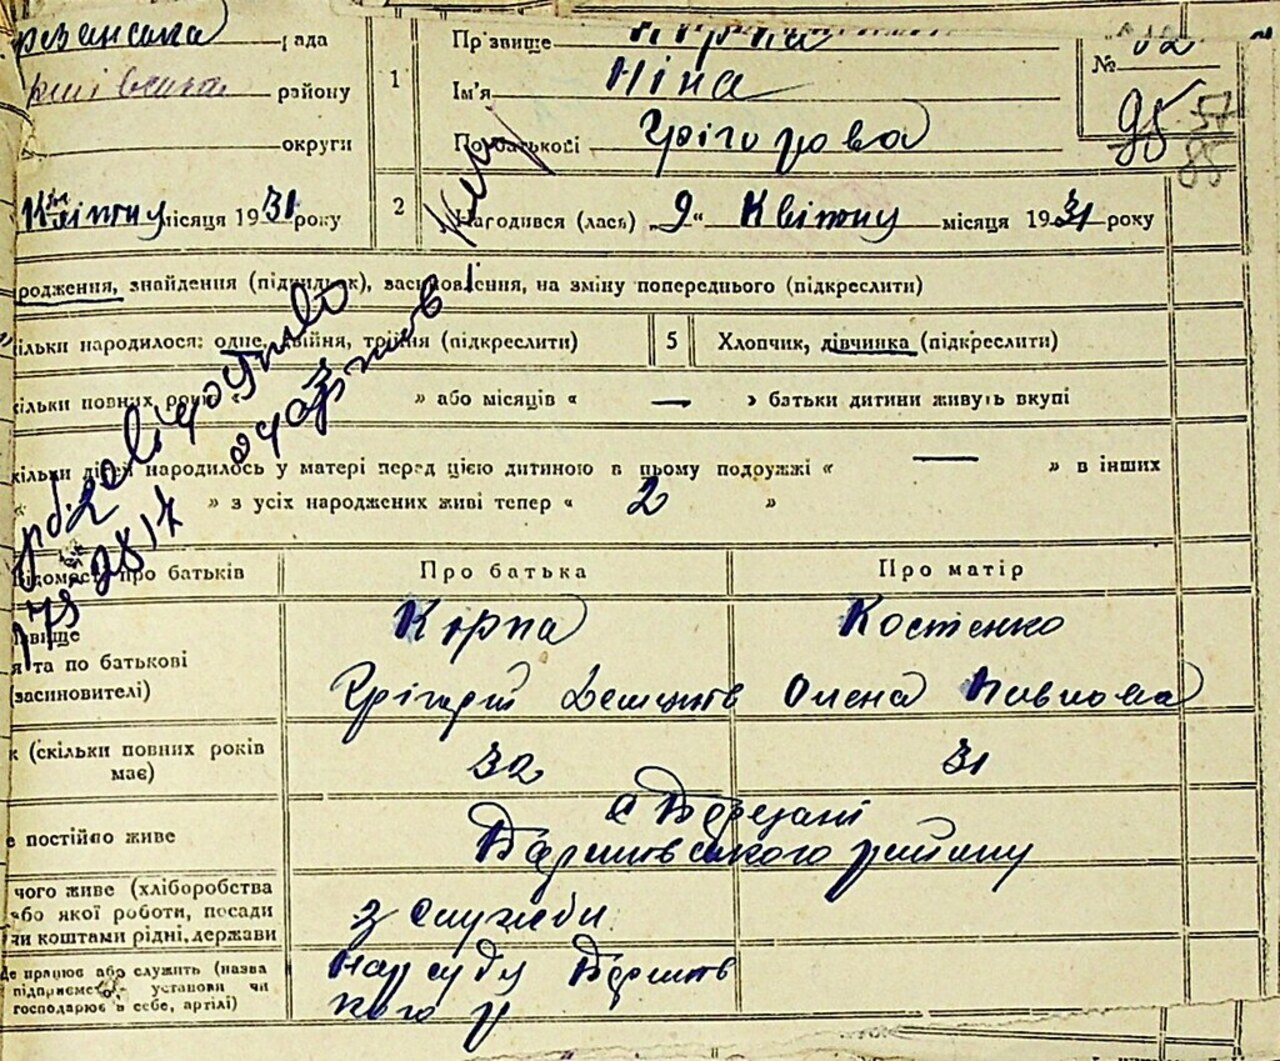 рада
району
округи
1
Прізвище
Ім'я Ніна
По батькові Грігорова
№ 95 57
85
Квітня місяця 1931 року
2
Народився (лась) „9“ Квітня місяця 1931 року
родження, знайдення (підкидьок), засиновлення, на зміну попереднього (підкреслити)
ільки народилося: одне, двійня, трійня (підкреслити)
5 Хлопчик, дівчинка (підкреслити)
кільки повних років « » або місяців « — » батьки дитини живуть вкупі
кільки дітей народилось у матері перед цією дитиною в цьому подружжі « — » в інших
« » з усіх народжених живі тепер « 2 »
Відомості про батьків
Про батька
Про матір
ізвище
я та по батькові
(засиновителі)
Кірпа
Грігорій
Костенко
Олена Павлова
к (скільки повних років
має)
32
31
е постійно живе
с Березані
Баришівського району
чого живе (хліборобства
або якої роботи, посади
чи коштами рідні, держави
з служби
Де працює або служить (назва
підприємства, установи чи
господарює в себе, артілі)
Нарсуду Баришів
кого р